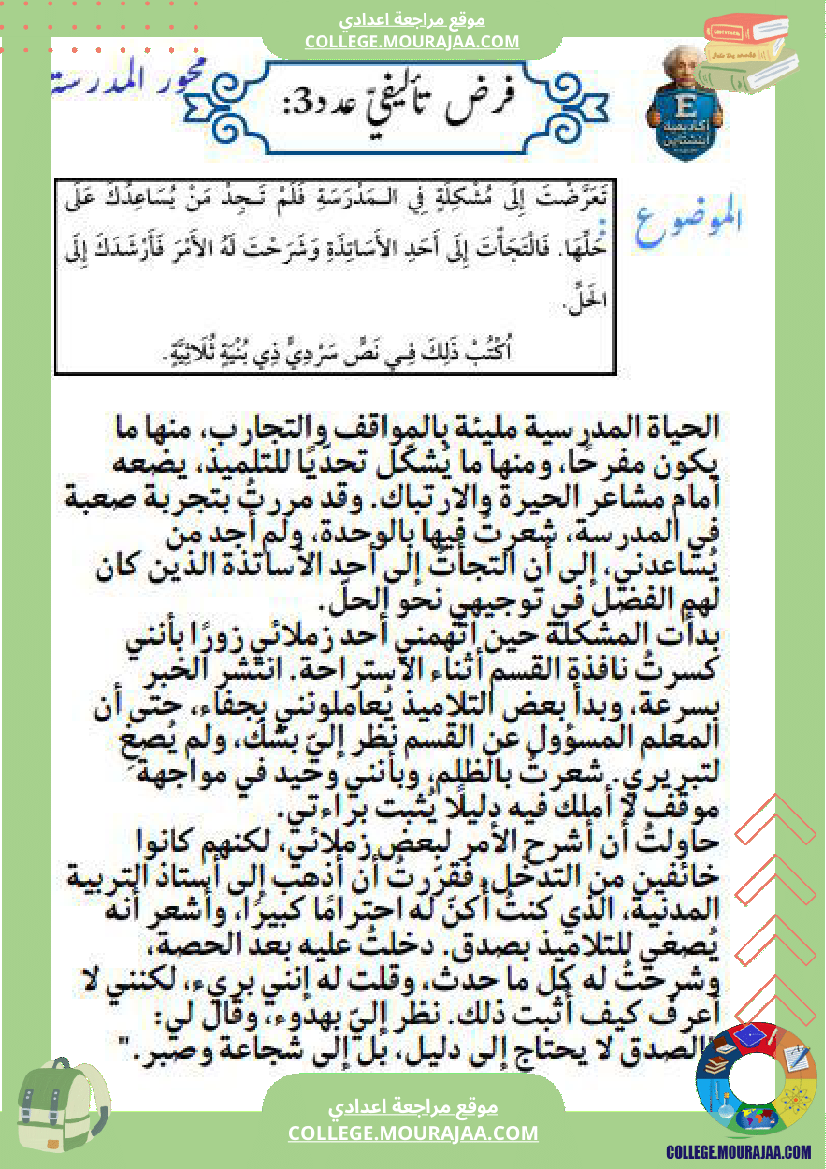 موقع مراجعة اعدادي
COLLEGE.MOURAJAA.COM
محور المدرسة
فرض تأليفيّ عدد3:
E
أكاديمية
أينشتاين
الموضوع:
تَعَرَّضْتَ إِلَى مُشْكِلَةٍ فِي الـمَدْرَسَةِ فَلَمْ تَـجِدْ مَنْ يُسَاعِدُكَ عَلَى
حَلِّهَا. فَالْتَجَأْتَ إِلَى أَحَدِ الأَسَاتِذَةِ وَشَرَحْتَ لَهُ الأَمْرَ فَأَرْشَدَكَ إِلَى
الحَلِّ.
اُكْتُبْ ذَلِكَ فِـي نَصٍّ سَرْدِيٍّ ذِي بُنْيَةٍ ثُلَاثِيَّةٍ.
الحياة المدرسية مليئة بالمواقف والتجارب، منها ما
يكون مفرحًا، ومنها ما يُشكّل تحدّيًا للتلميذ، يضعه
أمام مشاعر الحيرة والارتباك. وقد مررتُ بتجربة صعبة
في المدرسة، شعرتُ فيها بالوحدة، ولم أجد من
يُساعدني، إلى أن التجأتُ إلى أحد الأساتذة الذين كان
لهم الفضل في توجيهي نحو الحلّ.
بدأت المشكلة حين اتّهمني أحد زملائي زورًا بأنني
كسرتُ نافذة القسم أثناء الاستراحة. انتشر الخبر
بسرعة، وبدأ بعض التلاميذ يُعاملونني بجفاء، حتى أن
المعلم المسؤول عن القسم نظر إليّ بشكّ، ولم يُصغِ
لتبريري. شعرتُ بالظلم، وبأنني وحيد في مواجهة
موقف لا أملك فيه دليلًا يُثبت براءتي.
حاولتُ أن أشرح الأمر لبعض زملائي، لكنهم كانوا
خائفين من التدخل. فقرّرتُ أن أذهب إلى أستاذ التربية
المدنية، الذي كنتُ أكنّ له احترامًا كبيرًا، وأشعر أنه
يُصغي للتلاميذ بصدق. دخلتُ عليه بعد الحصة،
وشرحتُ له كل ما حدث، وقلت له إنني بريء، لكنني لا
أعرف كيف أُثبت ذلك. نظر إليّ بهدوء، وقال لي:
"الصدق لا يحتاج إلى دليل، بل إلى شجاعة وصبر."
موقع مراجعة اعدادي
COLLEGE.MOURAJAA.COM
COLLEGE.MOURAJAA.COM